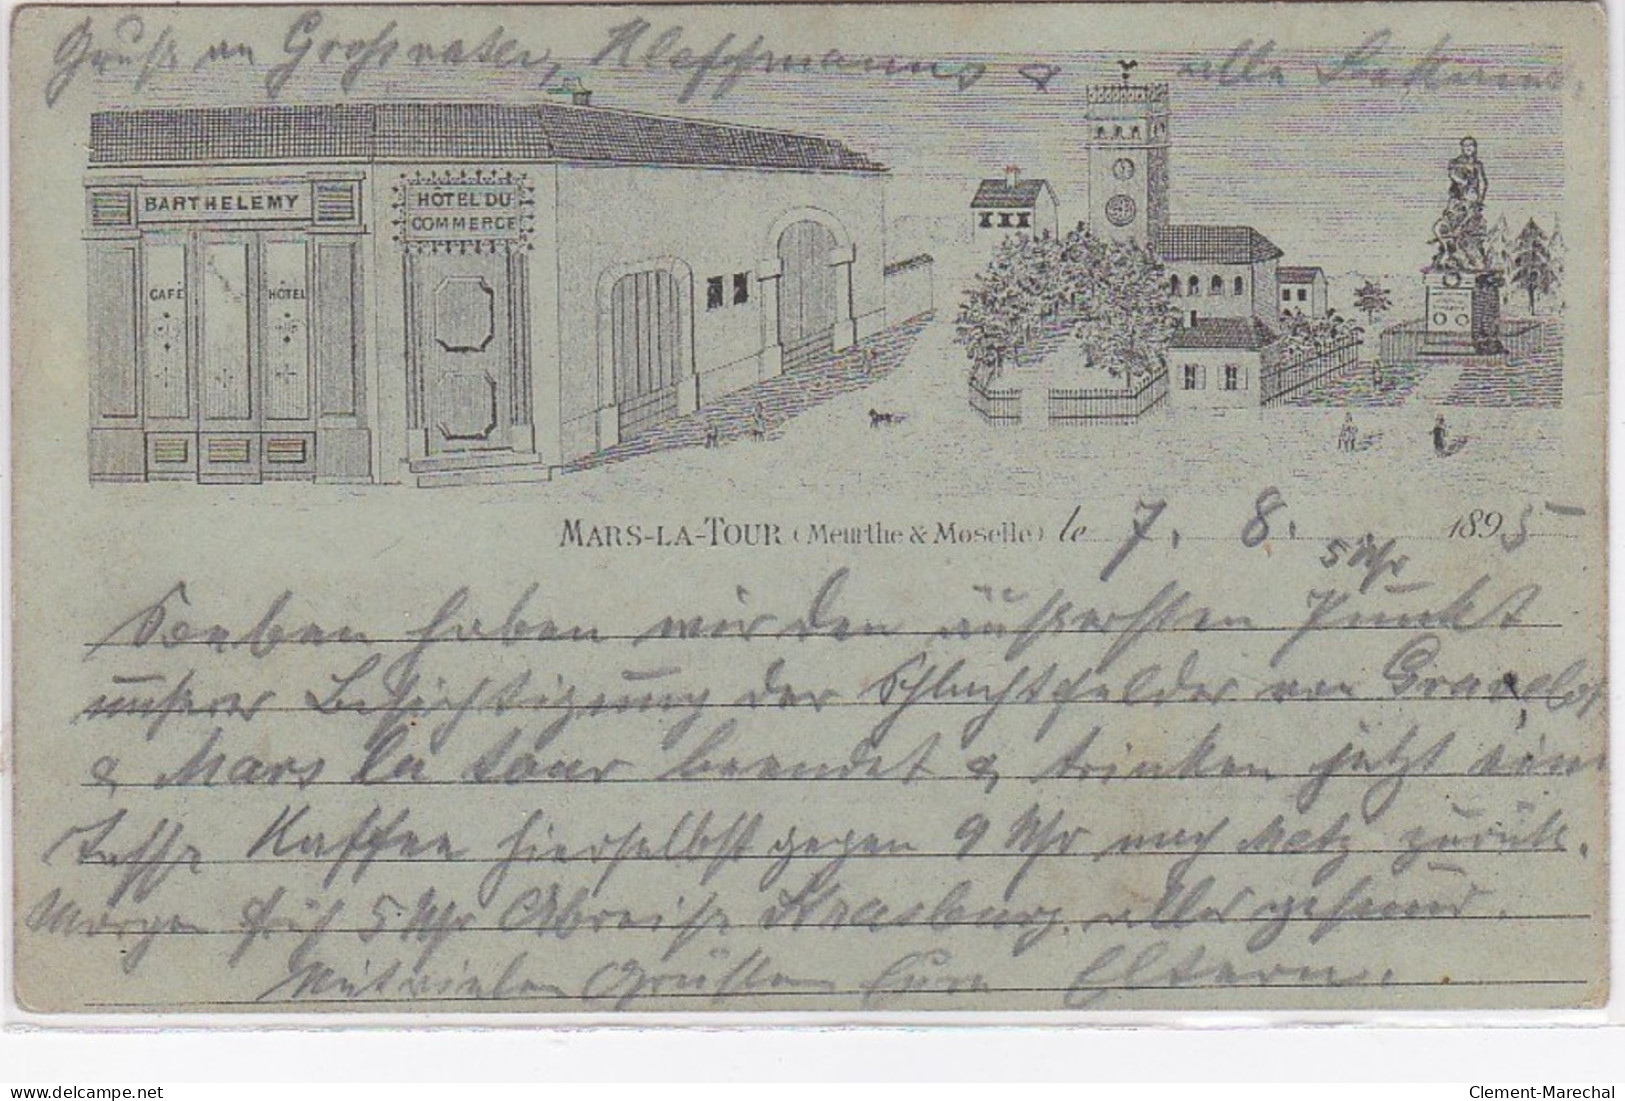 Gruß an Großvater, Kleffmanns & alle Bekannte.
BARTHELEMY
HÔTEL DU
COMMERCE
CAFÉ
HÔTEL
MARS-LA-TOUR (Meurthe & Moselle) le 7. 8. 1895
5 Uhr
Soeben haben wir den äußersten Punkt
unserer Besichtigung der Schlachtfelder von Gravelot
& Mars la tour beendet & trinken jetzt eine
Tasse Kaffee hierselbst gegen 9 Uhr nach Metz zurück.
Morgen früh 5 Uhr Abreise Strasburg. alles gesund.
Mit vielen Grüßen Eure Eltern.
Clement-Marechal
delcampe.net